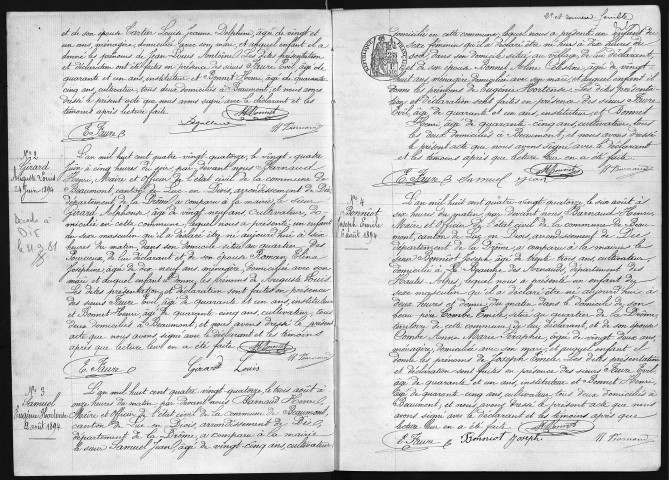 et de son épouse Cartier Louise Jeanne Delphine, âgée de vingt et
un ans, ménagère, domiciliée avec son mari, et auquel enfant il a
donné les prénoms de Jean Louis Antonin. Les dites présentation
et déclaration ont été faites en présence des sieurs Faure Evil, âgé de
quarante et un ans, instituteur et Bonnet Henri, âgé de quarante-
cinq ans, cultivateur, tous deux domiciliés à Beaumont, et nous avons
dressé le présent acte que nous avons signé avec le déclarant et les
témoins après lecture faite.
E. Faure
H Barnaud
N° 2
Girard
Auguste Louis
24 Juin 1894
Décédé à
Die
L'an mil huit cent quatre-vingt-quatorze, le vingt-quatre
Juin à cinq heures du soir, par devant nous Barnaud
Henri, Maire et officier de l'état civil de la commune de
Beaumont, canton de Luc-en-Diois, arrondissement de Die,
département de la Drôme, a comparu à la mairie, le sieur
Girard Alphonse, âgé de vingt-neuf ans, cultivateur, do-
micilié en cette commune, lequel nous a présenté un enfant
du sexe masculin qu'il a déclaré être né aujourd'hui à six
heures du matin, dans son domicile situé au quartier des
du déclarant et de son épouse Roman Elina
Joséphine, âgée de dix neuf ans, ménagère, domiciliée avec son
mari et auquel enfant il a donné les prénoms de Auguste Louis.
Les dites présentation et déclaration sont faites en présence
des sieurs Faure Evil, âgé de quarante et un ans, instituteur
et Bonnet Henri, âgé de quarante-cinq ans, cultivateur, tous
deux domiciliés à Beaumont, et nous avons dressé le présent
acte que nous avons signé avec le déclarant et les témoins
après que lecture leur en a été faite.
E. Faure Girard Louis H Barnaud
N° 3
Samuel
Eugénie Hortense
2 août 1894
L'an mil huit cent quatre-vingt-quatorze, le trois août à
heures du matin, par devant nous Barnaud Henri,
Maire et officier de l'état civil de la commune de Beaumont,
canton de Luc-en-Diois, arrondissement de Die,
département de la Drôme, a comparu à la mairie
le sieur Samuel Jean, âgé de vingt-cinq ans, cultivateur,
2e et dernière feuille
domicilié en cette commune, lequel nous a présenté un enfant du
sexe féminin qu'il a déclaré être né hier à deux heures du
soir, dans son domicile situé au village, de lui déclarant,
et de son épouse âgée de vingt-
huit ans, ménagère, domiciliée avec son mari, et auquel enfant il a
donné les prénoms de Eugénie Hortense. Les dites présenta-
tion et déclaration sont faites en présence des sieurs Faure
Evil, âgé de quarante et un ans, instituteur et Bonnet
Henri, âgé de quarante-cinq ans, cultivateur, tous
les deux domiciliés à Beaumont, et nous avons dressé
le présent acte que nous avons signé avec le déclarant
et les témoins après que lecture leur en a été faite.
E. Faure Samuel Jean H Barnaud
N° 4
Bonniot
Joseph Emile
août 1894
L'an mil huit cent quatre-vingt-quatorze, le six août à
six heures du matin, par devant nous Barnaud Henri,
Maire et officier de l'état civil de la commune de Beau-
mont, canton de Luc-en-Diois, arrondissement de Die,
département de la Drôme, a comparu à la mairie le
sieur Bonniot Joseph, âgé de trente trois ans, cultivateur,
domicilié à La Beaume des Arnauds, département des
Hautes-Alpes, lequel nous a présenté un enfant du
sexe masculin qu'il a déclaré être né aujourd'hui à
deux heures et demie du matin dans le domicile de son
beau-père Combe Emile, situé au quartier de la Drôme,
territoire de cette commune, de lui déclarant, et de son épouse
Combe Anne Marie Séraphie, âgée de vingt deux ans,
ménagère, domiciliée avec son mari, et auquel enfant il a
donné les prénoms de Joseph Emile. Les dites présentation
et déclaration sont faites en présence des sieurs Faure Evil,
âgé de quarante et un ans, instituteur et Bonnet Henri,
âgé de quarante-cinq ans, cultivateur, tous deux domiciliés à
Beaumont, et nous avons dressé le présent acte que nous
avons signé avec le déclarant et les témoins après que
lecture leur en a été faite.
E. Faure Bonniot Joseph H Barnaud